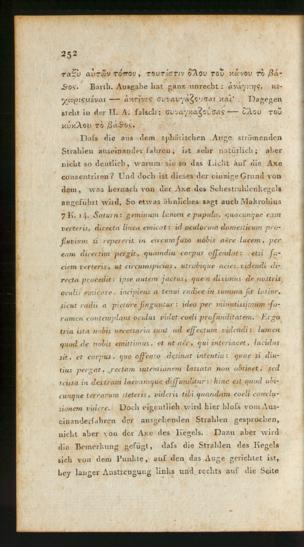 252
ταξὺ αὐτῶν τόπον, τουτέστιν ὅλου τοῦ κώνου τὸ βά-
θος. Barth. Ausgabe hat ganz unrecht: ἀνάγκης, κε-
χωρισμέναι — ἀκτῖνες συναυγάζουσαι καὶ· Dagegen
steht in der H. A. falsch: συναγκαζούσας — ὅλου τοῦ
κύκλου τὸ βάθος.
Daſs die aus dem sphärischen Auge strömenden
Strahlen auseinander fahren, ist sehr natürlich; aber
nicht so deutlich, warum sie so das Licht auf die Axe
concentriren? Und doch ist dieses der einzige Grund von
dem, was hernach von der Axe des Sehestrahlenkegels
angeführt wird. So etwas ähnliches sagt auch Makrobius
7 K. 14. Saturn: geminum lumen e pupula, quocunque eam
verteris, directa linea emicat: id oculorum domesticum pro-
fluvium si repererit in circumfuso nobis aëre lucem, per
eam directim pergit, quamdiu corpus offendat: etsi fa-
ciem verteris, ut circumspicias, utrobique acies videndi di-
recta procedit: ipse autem jactus, quem diximus de nostris
oculis emicare, incipiens a tenui radice in summa fit latior,
sicut radii a pictore finguntur: ideo per minutissimum fo-
ramen contemplans oculus videt coeli profunditatem. Ergo
tria ista nobis necessaria sunt ad effectum videndi: lumen
quod de nobis emittimus, et ut aër, qui interiacet, lucidus
sit, et corpus, quo offenso desinat intentio: quae si diu-
tius pergat, rectam intensionem lassata non obtinet, sed
scissa in dextram laevamque diffunditur: hinc est quod ubi-
cunque terrarum steteris, videris tibi quandam coeli conclu-
sionem videre. Doch eigentlich wird hier bloſs vom Aus-
einanderfahren der ausgehenden Strahlen gesprochen,
nicht aber von der Axe des Kegels. Dazu aber wird
die Bemerkung gefügt, daſs die Strahlen des Kegels
sich von dem Punkte, auf den das Auge gerichtet ist,
bey langer Anstrengung links und rechts auf die Seite